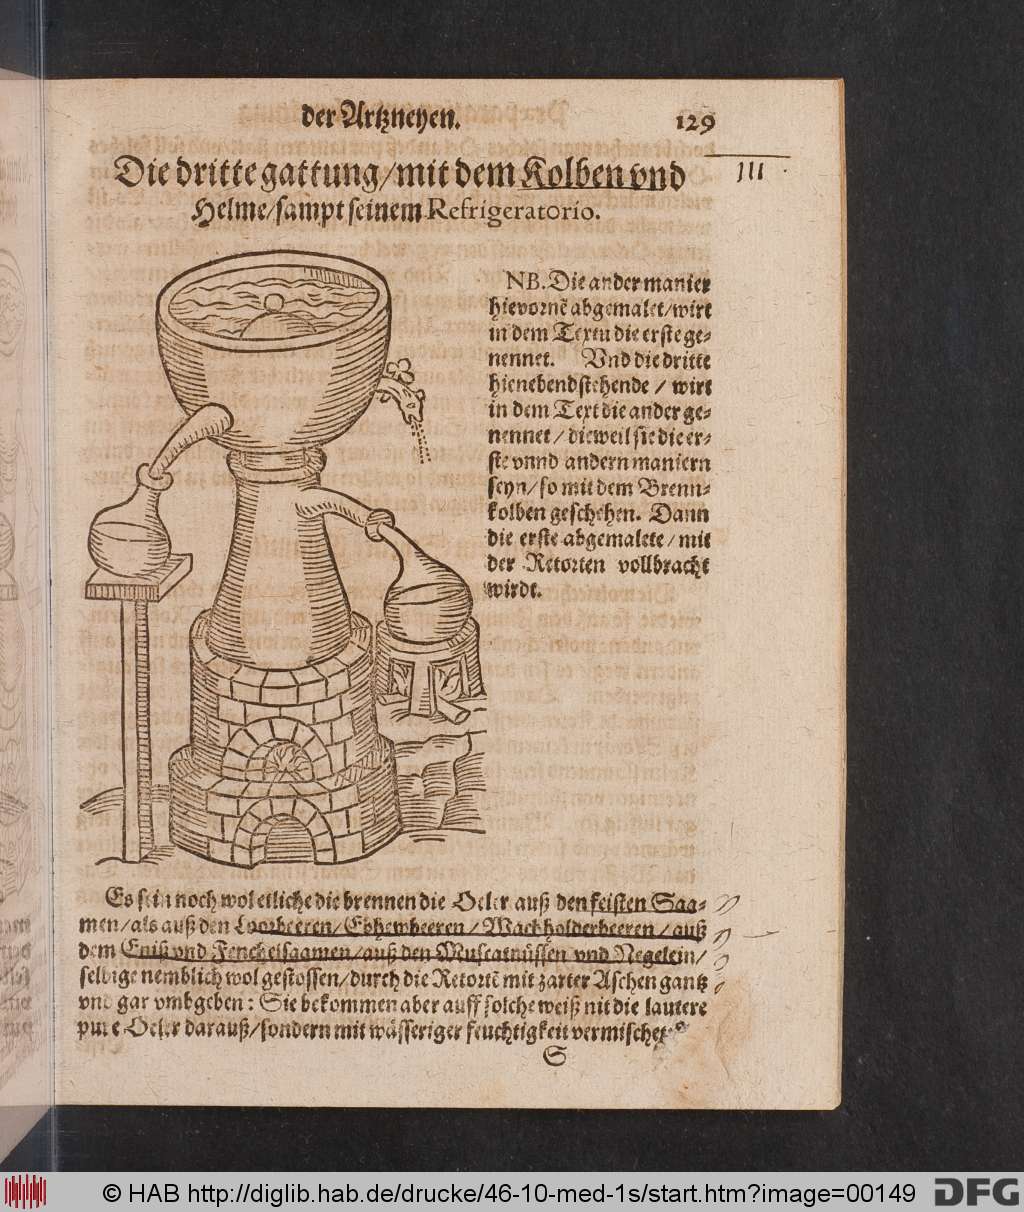 der Artzneyen. 129
Die dritte gattung/mit dem Kolben vnd
Helme/sampt seinem Refrigeratorio.
III
NB. Die ander manier
hievornē abgemalet/wirt
in dem Textu die erste ge-
nennet. Vnd die dritte
hienebendstehende / wirt
in dem Text die ander ge-
nennet / dieweil sie die er-
ste vnnd andern maniern
seyn/so mit dem Brenn-
kolben geschehen. Dann
die erste abgemalete / mit
der Retorten vollbracht
wirdt.
Es sein noch wol etliche die brennen die Oeler auß den feisten Saa-
men/als auß den Loorbeeren/Ebhewbeeren/Wachholderbeeren/auß
dem Eniß vnd Fenchelsaamen/auß den Muscatnüssen vnd Negelein/
selbige nemblich wol gestossen/durch die Retortē mit zarter Aschen gantz
vnd gar vmbgeben: Sie bekommen aber auff solche weiß nit die lautere
pure Oeler darauß/sondern mit wässeriger feuchtigkeit vermischet
S
© HAB http://diglib.hab.de/drucke/46-10-med-1s/start.htm?image=00149
DFG